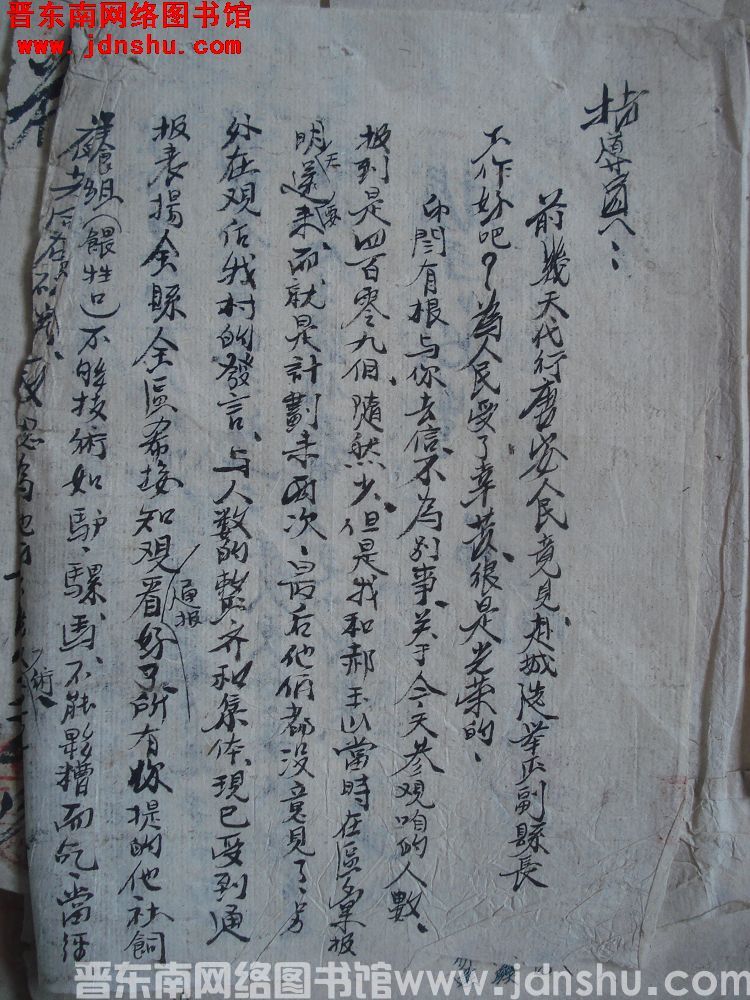 晋东南网络图书馆
www.jdnshu.com
前幾天代行唐安人民意見、赴城选举正副縣長
工作好吧？為人民受了辛苦、很是光荣的、
有根与你去信、不為别事、关于今天参观咱的人數、
报到是四百零九個、隨然少、但是我和郝玉山當時在區彙报
明天送来、而就是計劃来两次、最后他俩都没意見了、另
外在观佔我村的發言、与人数的整齐和集体、現已受到通
报表揚全縣全區
通报
知观看好了所有你提的他社飼
養組（餵牲口）不够技術如驴、騾、馬、不能夥糟而吃、當
術、
晋东南网络图书馆 www.jdnshu.com